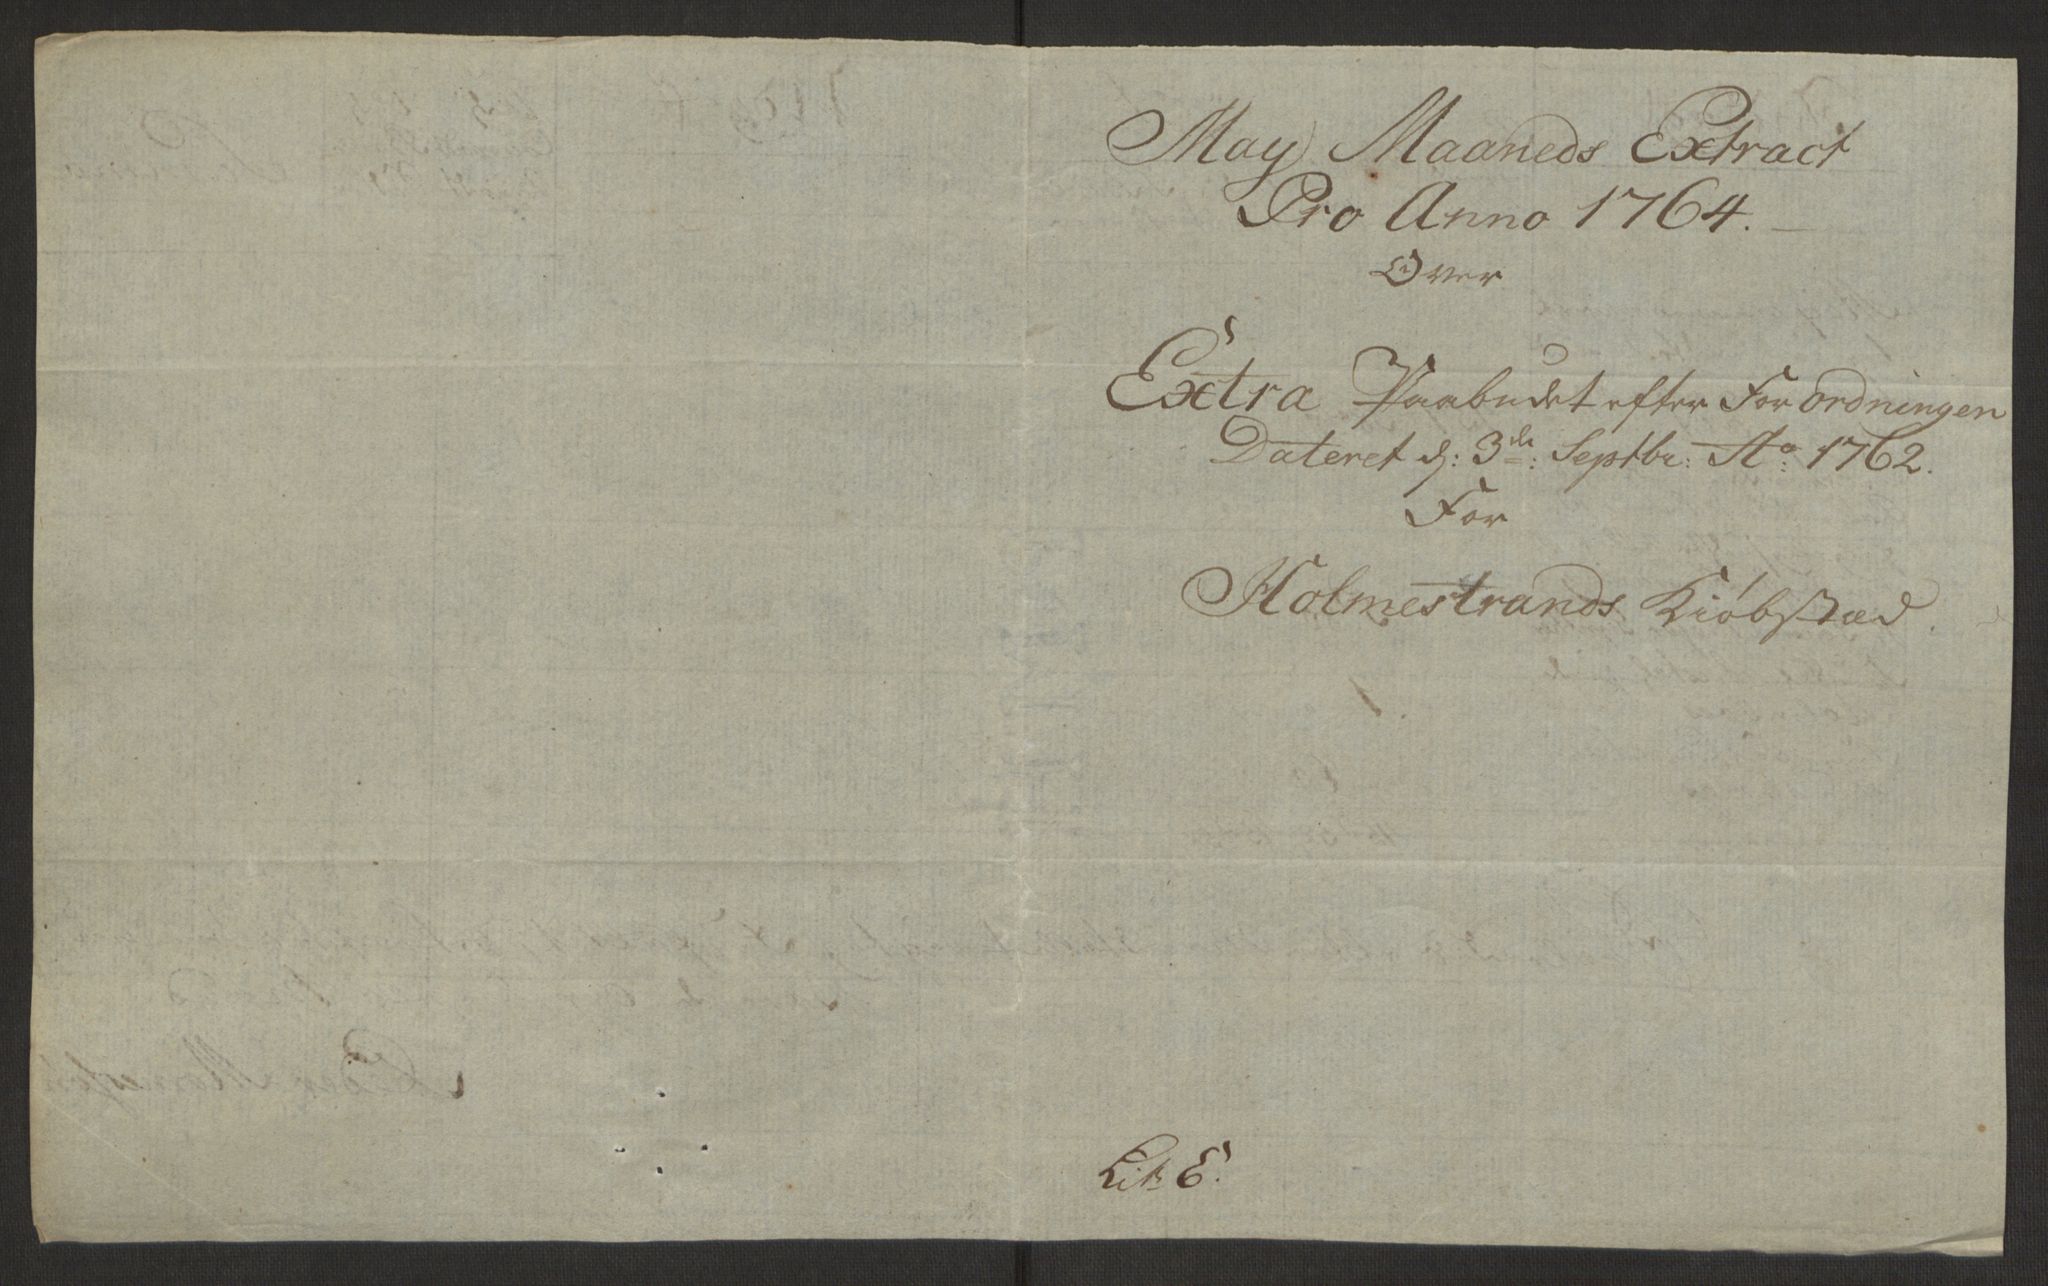 May Maaneds Extract
Pro Anno 1764.
Over
Extra Paabudet efter Forordningen
Dateret d: 3de: Septbr: Ao: 1762.
For
Holmestrands Kiöbstæd.
Lit: E.